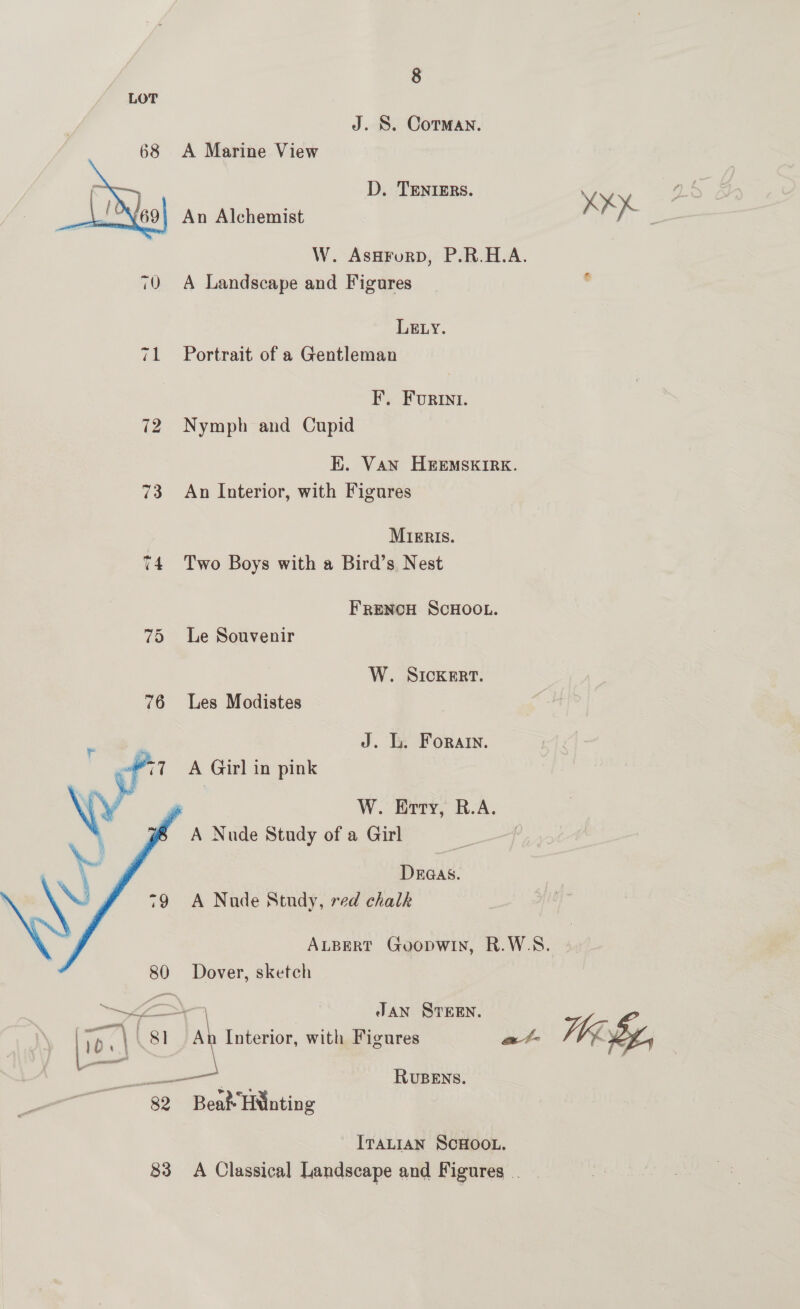 8
LOT
J. S. COTMAN.
68 A Marine View
D. TENIERS.
69 An Alchemist XXX
W. ASHFURD, P.R.H.A.
70 A Landscape and Figures
LELY.
71 Portrait of a Gentleman
F. FURINI.
72 Nymph and Cupid
E. VAN HEEMSKIRK.
73 An Interior, with Figures
MIERIS.
74 Two Boys with a Bird's Nest
FRENCH SCHOOL.
75 Le Souvenir
W. SICKERT.
76 Les Modistes
J. L. FORAIN.
77 A Girl in pink
W. ETTY, R.A.
78 A Nude Study of a Girl
DEGAS.
79 A Nude Study, red chalk
ALBERT GOODWIN, R.W.S.
80 Dover, sketch
JAN STEEN.
10. 81 An Interior, with Figures
RUBENS.
82 Bear Hunting
ITALIAN SCHOOL.
83 A Classical Landscape and Figures